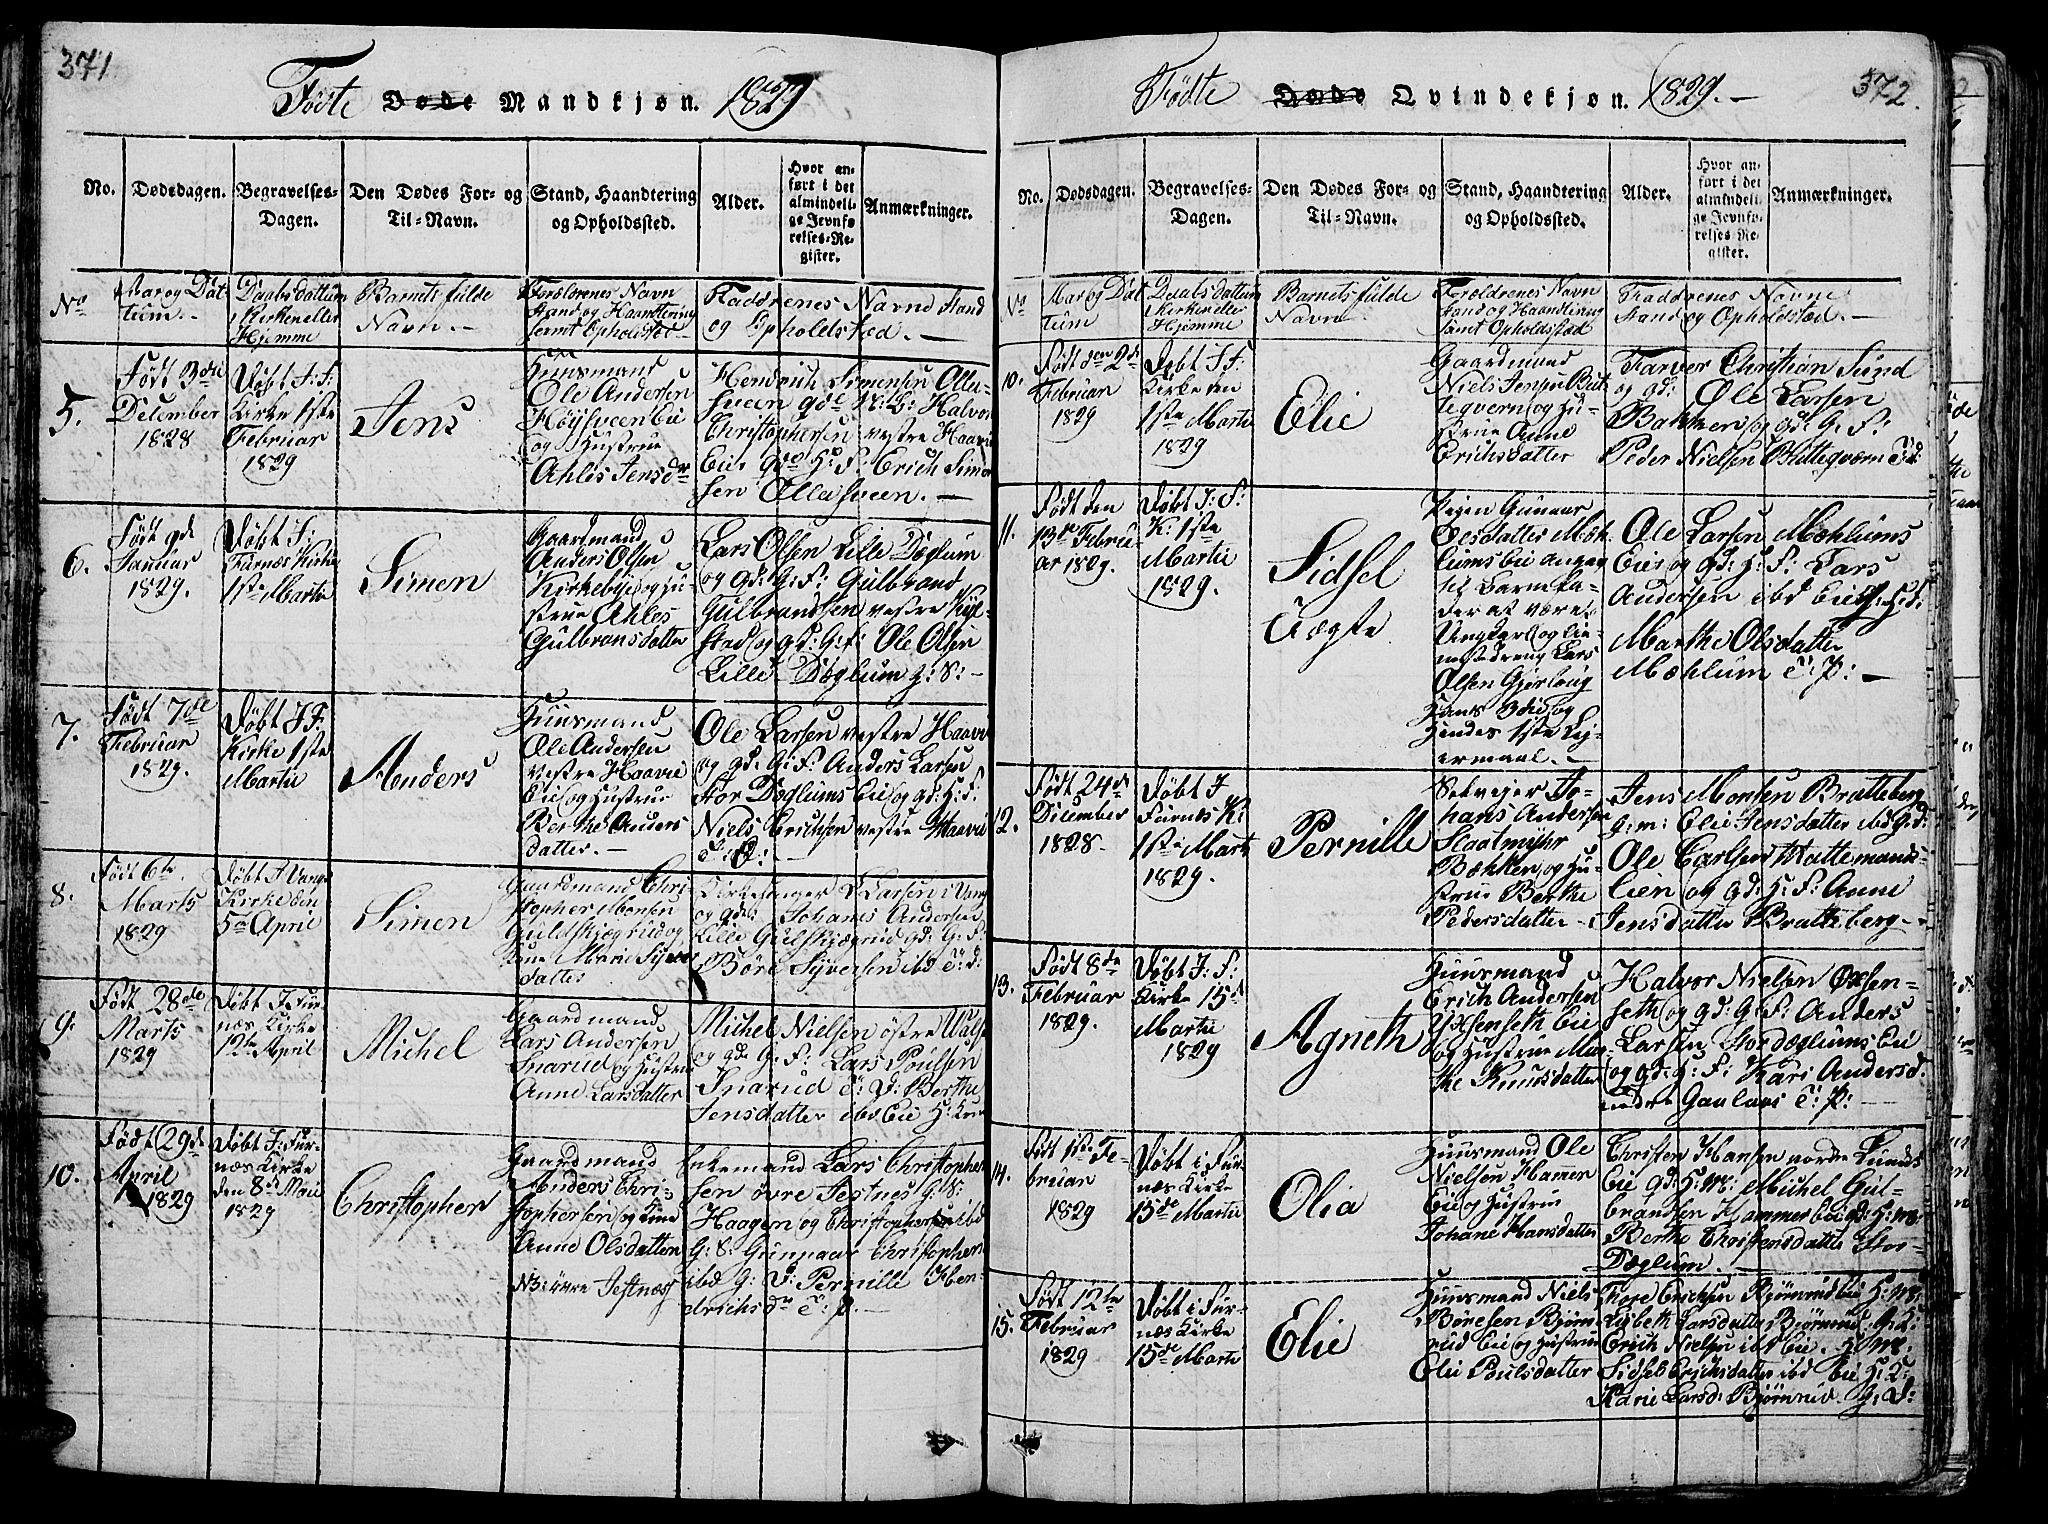 371
Fødte Døde Mandkjøn. 1829
No.
Dødsdagen.
Begravelses-
Dagen.
Den Dødes For- og
Til-Navn.
Stand, Haandtering
og Opholdssted.
Alder.
Hvor an-
ført i det
almindeli-
ge Jevnfø-
relses-Re-
gister.
Anmærkninger.
No
Aar og Dat-
tum
Daabsdattum
i Kirken eller
Hjemme
Barnets fulde
Navn.
Forældrenes Navn
Stand og Haandtering
samt Opholdsted
Faddrenes Navne Stand
og Opholdsted.
5.
Født 3die
December
1828
Døbt i F:
Kirke 1ste
Februar
1829
Jens
Huusmand
Ole Andersen
Høysveen Eie
og Hustrue
Ahles Jensdr
Christophersen vestre Haavi
Eie Erich Simon
sen
6.
Født 9de
Januar
1829.
Døbt i
Furnæs Kirke
1ste Martii
Simen
Gaardmand
Anders Olsen
Kirkebye og Hu-
strue Ahles
Gulbransdatter
Lars Olsen Lille Dæglum
og Gd: G: F: Gulbrand
Gulbrandsen vestre Kyl-
stad og gd: G: F: Ole Olsen
Lille Dæglum
7.
Født 7de
Februar
1829.
Døbt i F:
Kirke 1ste
Martii
Anders
Huusmand
Ole Andersen
vestre Haavie
Eie og Hustrue
Berthe Anders
datter.
Ole Larsen vestre Haavi
og gd. G: F: Anders Larsen
Stor Dæglums Eie og gd: H: F:
Niels Erichsen vestre Haavie
8.
Født 6te
Marts
1829
Døbt i Vangs
Kirke den
5te April
Simen
Gaardmand Chri-
stopher Monsen
Marie Siver
datter
Kirkesanger Larsen i Vang
og Johanes Andersen
Lille gd: G: F:
Børe Syversen ibd
9.
Født 28de
Marts
1829
Døbt i Fur-
næs Kirke
12te April
Michel
Gaardmand
Lars Andersen
Snarud og Hustrue
Anne Larsdatter
Michel Nielsen østre
og gd. G: F: Lars Poulsen
Snarud Berthe
Jensdatter ibd Eie
10.
Født 29de
April
1829
Døbt i Fur-
næs Kirke
den 8de Mai
1829
Christopher
Gaardmand
Anders Chri-
stophersen og Kone
Anne Olsdatter
NB: øvre Jestnæs
Enkemand Lars Christopher
sen øvre Jestnes
Haagen og Christophersen ibd
Gunnaar Christophers
ibd Pernille Hen-
drichsdr
372.
Fødte Døde Qvindekjøn. 1829.
No.
Dødsdagen.
Begravelses-
Dagen.
Den Dødes For- og
Til-Navn.
Stand, Haandtering
og Opholdssted.
Alder.
Hvor an-
ført i det
almindeli-
ge Jevnfø-
relses-Re-
gister.
Anmærkninger.
No
Aar og Dat
tum
Daabsdattum
i Kirken eller
Hjemme
Barnets fulde
Navn.
Forældrenes Navn
Stand og Haandtering
samt Opholdsted
Faddrenes Navne
Stand og Opholdsted.
10.
Født den 2de
Februar
1829
Døbt i F:
Kirke den
1ste Martii
1829
Elie
Gaardmand
Niels Jensen Bit
teqvern og Hu-
strue Anne
Erichsdatter
Farver Christian Sund
og gd: Ole Larsen
Bakken og gd. G. F:
Peder Nielsen Bitteqvern
11.
Født den
13de Februi-
ar 1829.
Døbt i F:
K: 1ste
Martii
1829.
Sidsel
Uægte
Pigen Gunnar
Mæh-
lums Eie angav
til Barnefa-
der at være
Ungkarl og
Lars
Olsen
Hans og
Hendes 1ste Lej-
ermaal.
Ole Larsen Mæhlums
Eie og gd: H: F: Lars
Andersen ibd Eie
Marthe Olsdatter
Mæhlum T: P:
12.
Født 24de
December
1828.
Døbt i
Furnæs K:
1ste Martii
1829.
Pernille
Selvejer Jo-
hans Andersen
Bækken og Hu-
strue Berthe
Pedersdatter
Jens Monsen Bratteberg
g: m: Elie Jensdatter ibd Gd:
Ole Carlsen
Eien og gd: H: F: Anne
Jensdatter Bratteberg
13.
Født 8de
Februar
1829.
Døbt i F:
Kirke 15de
Martii
1829
Agneth
Huusmand
Erich Andersen
Eie
og Hustrue Mar-
the Knudsdatter
Halvor Nielsen Oxsen-
seth og gd: G: F: Anders
Larsen Stordæglums Eie
og gd: H: F: Kari Andersd.
nedre Gaalaas T: P:
14.
Født 1ste Fe-
bruar
1829
Døbt i Fur-
næs Kirke
15de Martii
Olia
Huusmand Ole
Nielsen Hamer
Eie og Hustrue
Johane Hansdatter
Christen Hansen nordre Lunds
Eie gd: H: M: Michel Gul-
brandsen Hammer Eie gd: H: M:
Berthe Christensdatter Stor-
Dæglum.
15.
Født 12te
Februar
1829
Døbt i Fur-
næs Kirke
15de Martii
Elie
Huusmand Niels
Børesen Bjørn
rud Eie og Hustrue
Elie Poulsdatter
Tore Erichsen Bjørnrud Eie H: M:
Lisbeth Larsdatter Bjørnrud G: K:
Erich Nielsen ibd Eie. H: M:
Sidsel Erichsdatter ibd Eie H: K:
Karie Larsd: Bjørnrud. G: P: